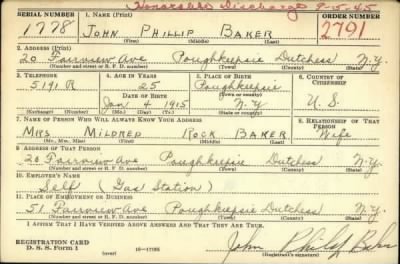 Honorable Discharge 9-15-45
SERIAL NUMBER 1. NAME (Print) ORDER NUMBER
1778 JOHN PHILLIP BAKER 2791
(First) (Middle) (Last)
2. ADDRESS (Print)
20 Fairview Ave Poughkeepsie Dutchess N.Y.
(Number and street or R. F. D. number) (Town) (County) (State)
3. TELEPHONE 4. AGE IN YEARS 5. PLACE OF BIRTH 6. COUNTRY OF CITIZENSHIP
5191 R 25 Poughkeepsie
(Town or county)
DATE OF BIRTH
Jan 4 1915 N.Y. U.S.
(Exchange) (Number) (Mo.) (Day) (Yr.) (State or country)
7. NAME OF PERSON WHO WILL ALWAYS KNOW YOUR ADDRESS 8. RELATIONSHIP OF THAT PERSON
MRS MILDRED ROCK BAKER Wife
(Mr., Mrs., Miss) (First) (Middle) (Last)
9. ADDRESS OF THAT PERSON
20 Fairview Ave Poughkeepsie Dutchess N.Y.
(Number and street or R. F. D. number) (Town) (County) (State)
10. EMPLOYER'S NAME
Self (Gas Station)
11. PLACE OF EMPLOYMENT OR BUSINESS
51 Fairview Ave Poughkeepsie Dutchess N.Y.
(Number and street or R. F. D. number) (Town) (County) (State)
I AFFIRM THAT I HAVE VERIFIED ABOVE ANSWERS AND THAT THEY ARE TRUE.
REGISTRATION CARD
D. S. S. Form 1 (over) 16-17105 John Philip Baker
(Registrant's signature)